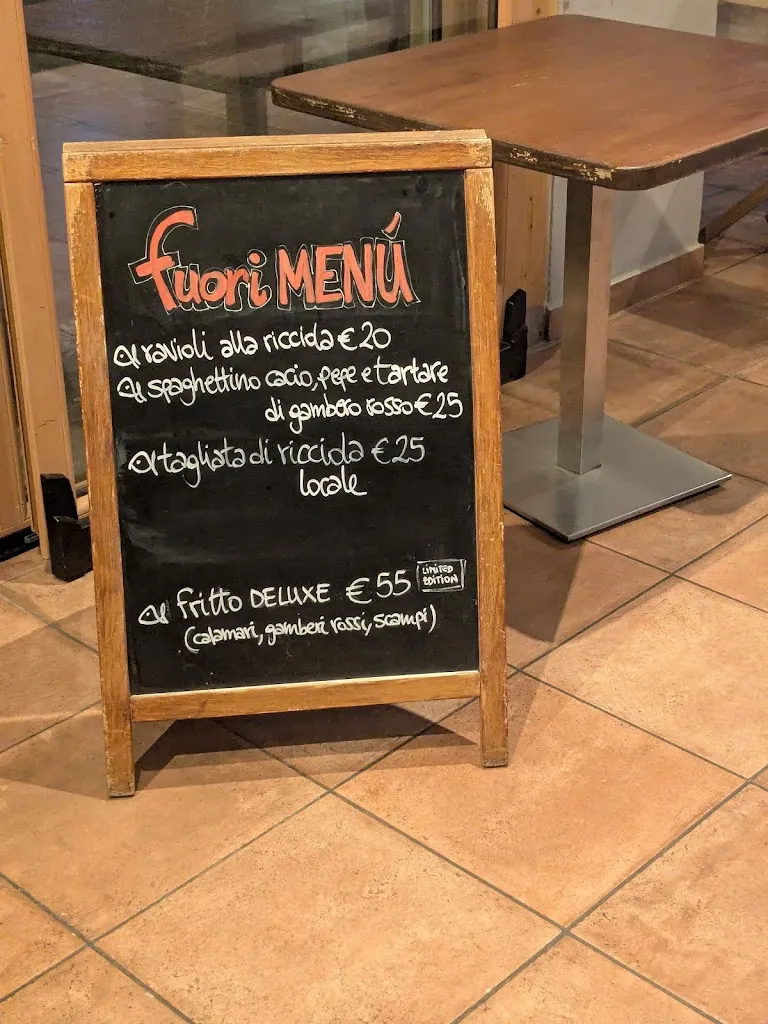 fuori MENÚ
ravioli alla ricciola €20
spaghettino cacio, pepe e tartare
di gambero rosso €25
tagliata di ricciola €25
locale
fritto DELUXE €55
LIMITED
EDITION
(calamari, gamberi rossi, scampi)